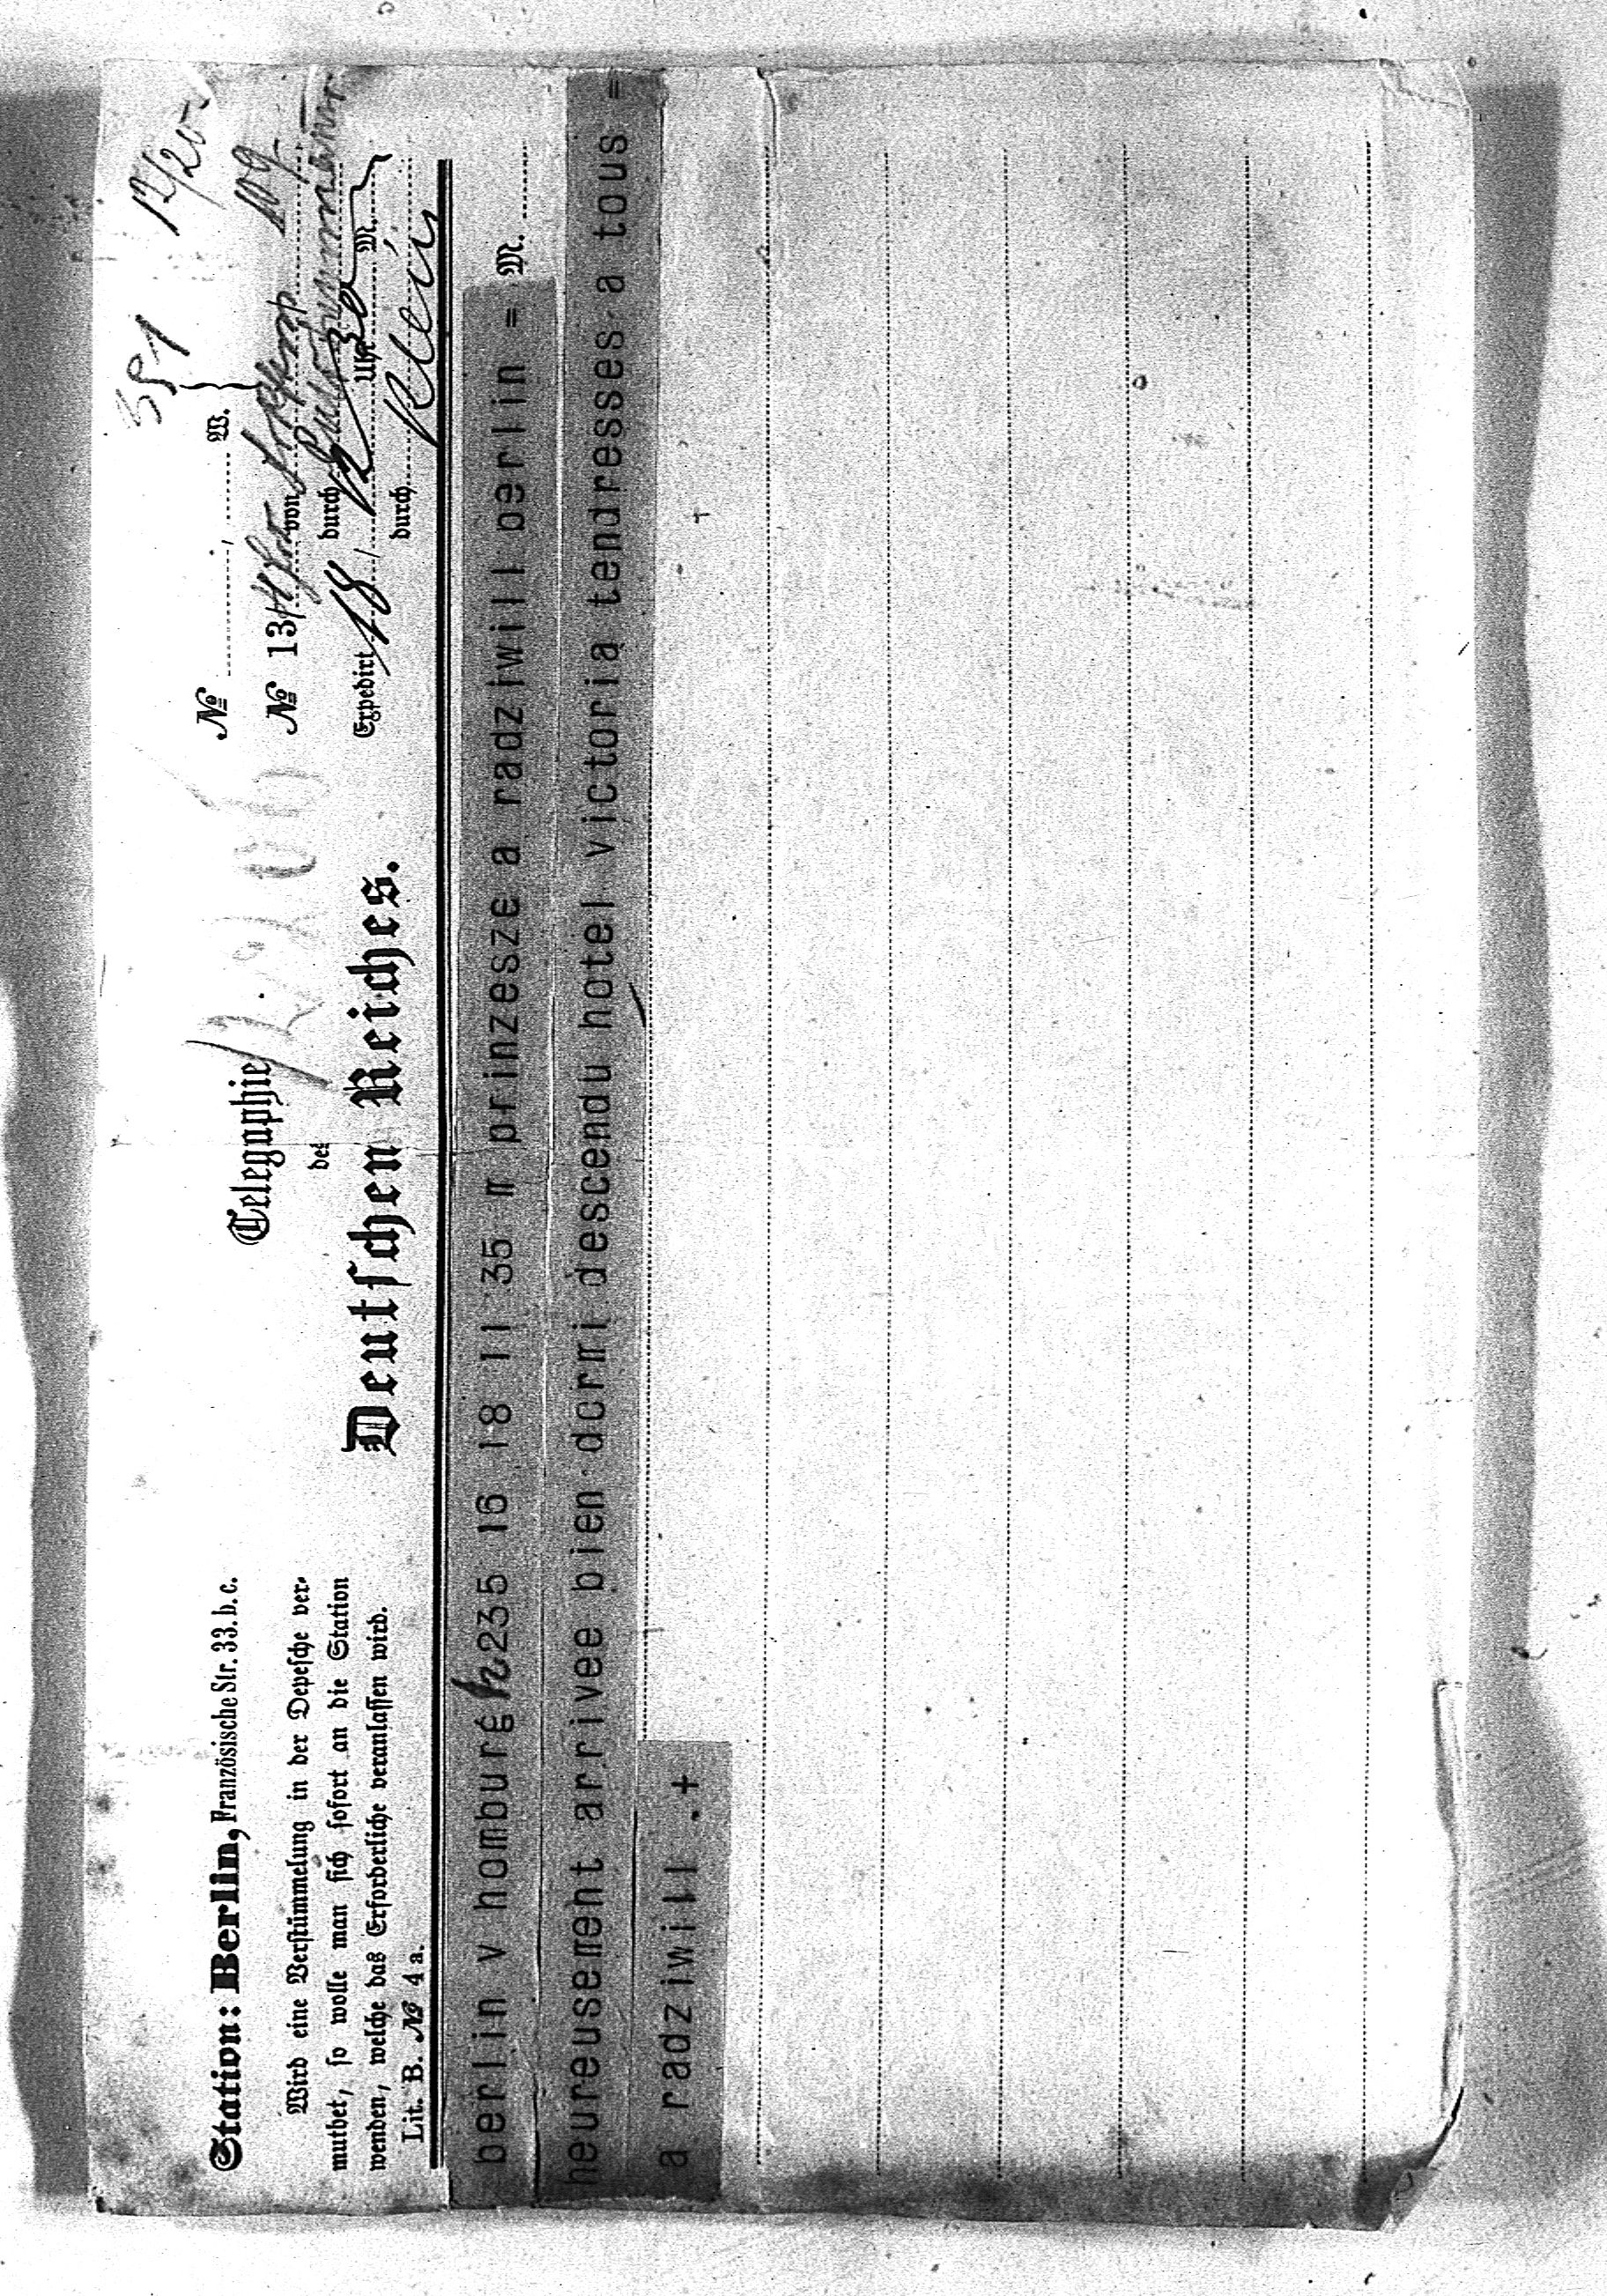 Station: Berlin, Französische Str. 33. b. c.
Wird eine Verstümmelung in der Depesche ver-
muthet, so wolle man sich sofort an die Station
wenden, welche das Erforderliche veranlassen wird.
Lit. B. № 4 a.
Telegraphie
des
Deutschen Reiches.
12/20
№ , W.
№ 13 von
durch
Expedirt 18 / Uhr M.
durch Klein
berlin v homburg h 235 16 18 11 35 m prinzesze a radziwill berlin = M.
heureusement arrivee bien dormi descendu hotel victoria tendresses a tous =
a radziwill .+